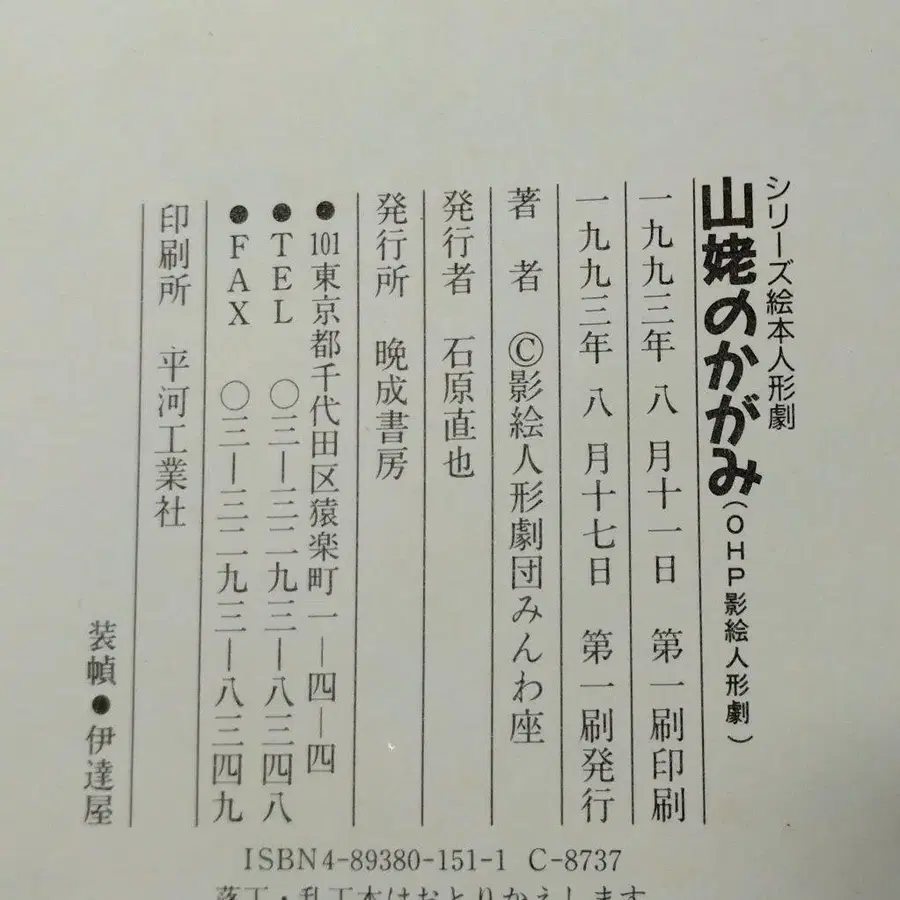 シリーズ絵本人形劇
山姥のかがみ(OHP影絵人形劇)
一九九三年 八 月十一日 第一刷印刷
一九九三年 八 月十七日 第一刷発行
著 者 ©影絵人形劇団みんわ座
発行者 石原直也
発行所 晩成書房
●101東京都千代田区猿楽町一―四―四
●TEL 〇三―三二九三―八三四八
●FAX 〇三―三二九三―八三四九
印刷所 平河工業社
装幀●伊達屋
ISBN4-89380-151-1 C-8737
落丁・乱丁本はおとりかえします